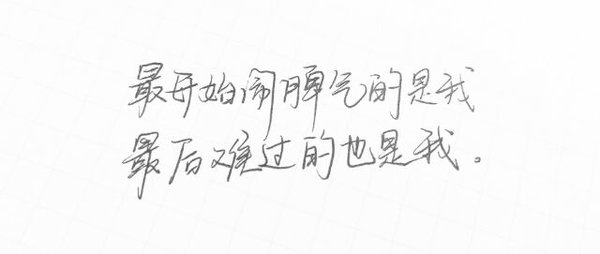 最开始闹脾气的是我
最后难过的也是我。